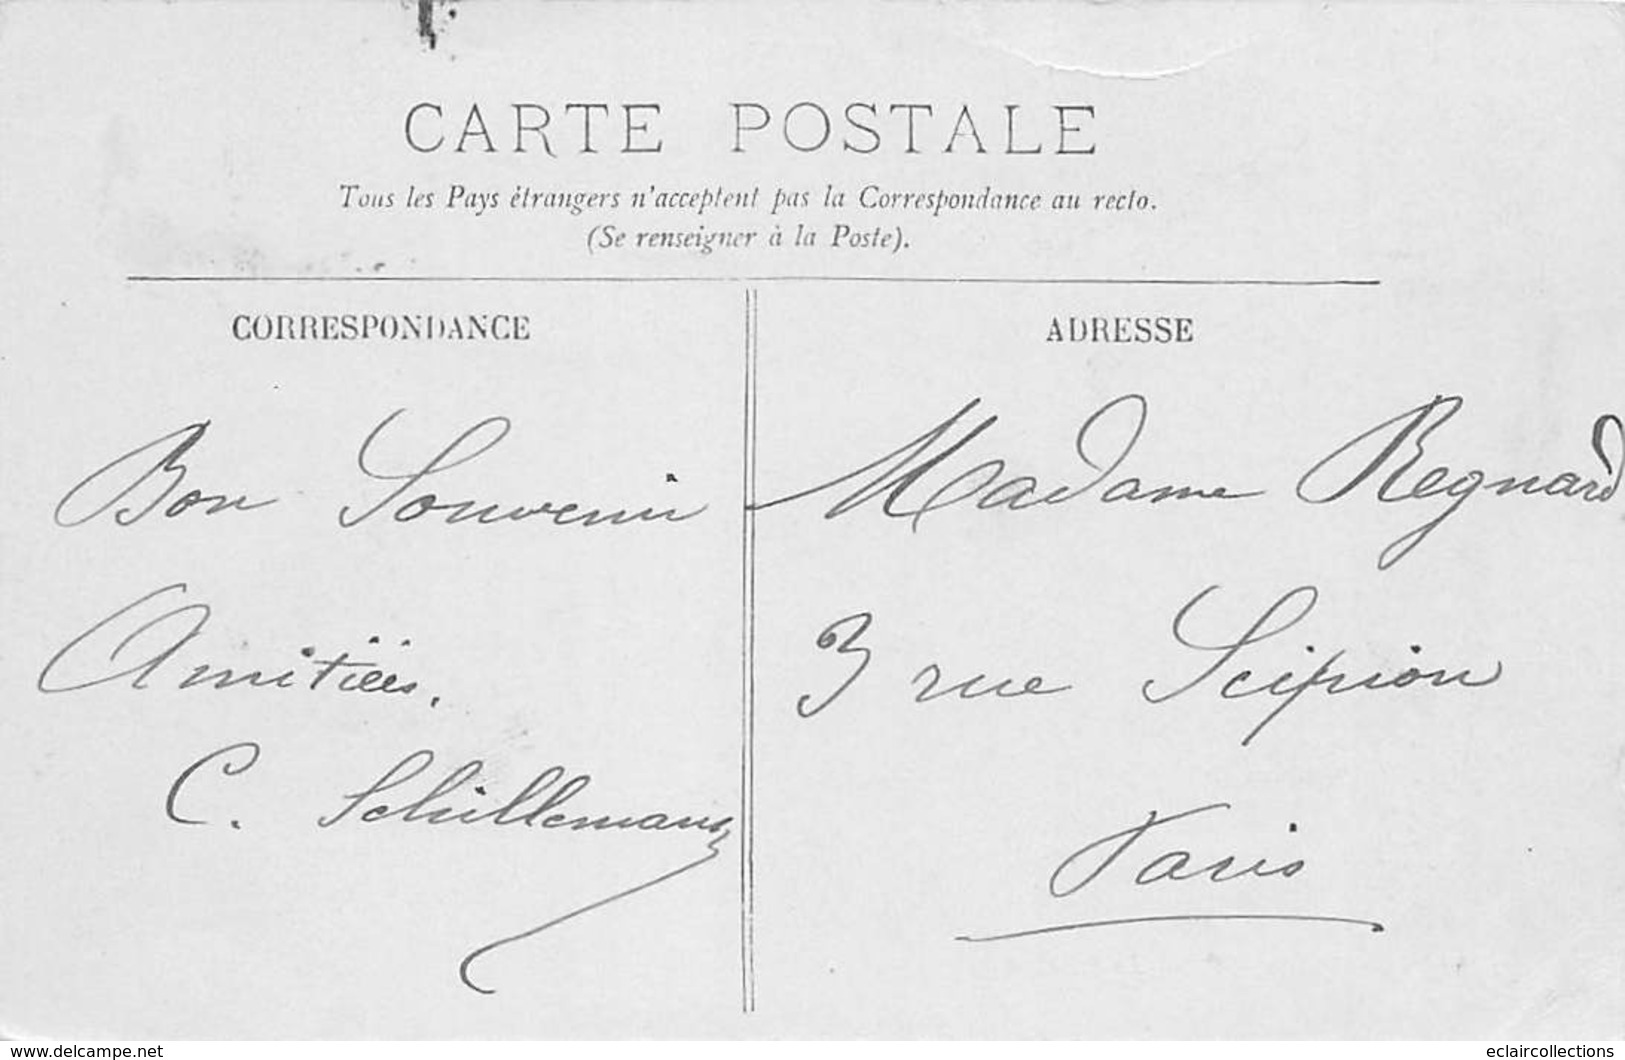 CARTE POSTALE
Tous les Pays étrangers n'acceptent pas la Correspondance au recto.
(Se renseigner à la Poste).
CORRESPONDANCE
Bon Souvenir
Amitiés.
C. Schillemans
ADRESSE
Madame Regnard
3 rue Scipion
Paris
www.delcampe.net
eclaircollections